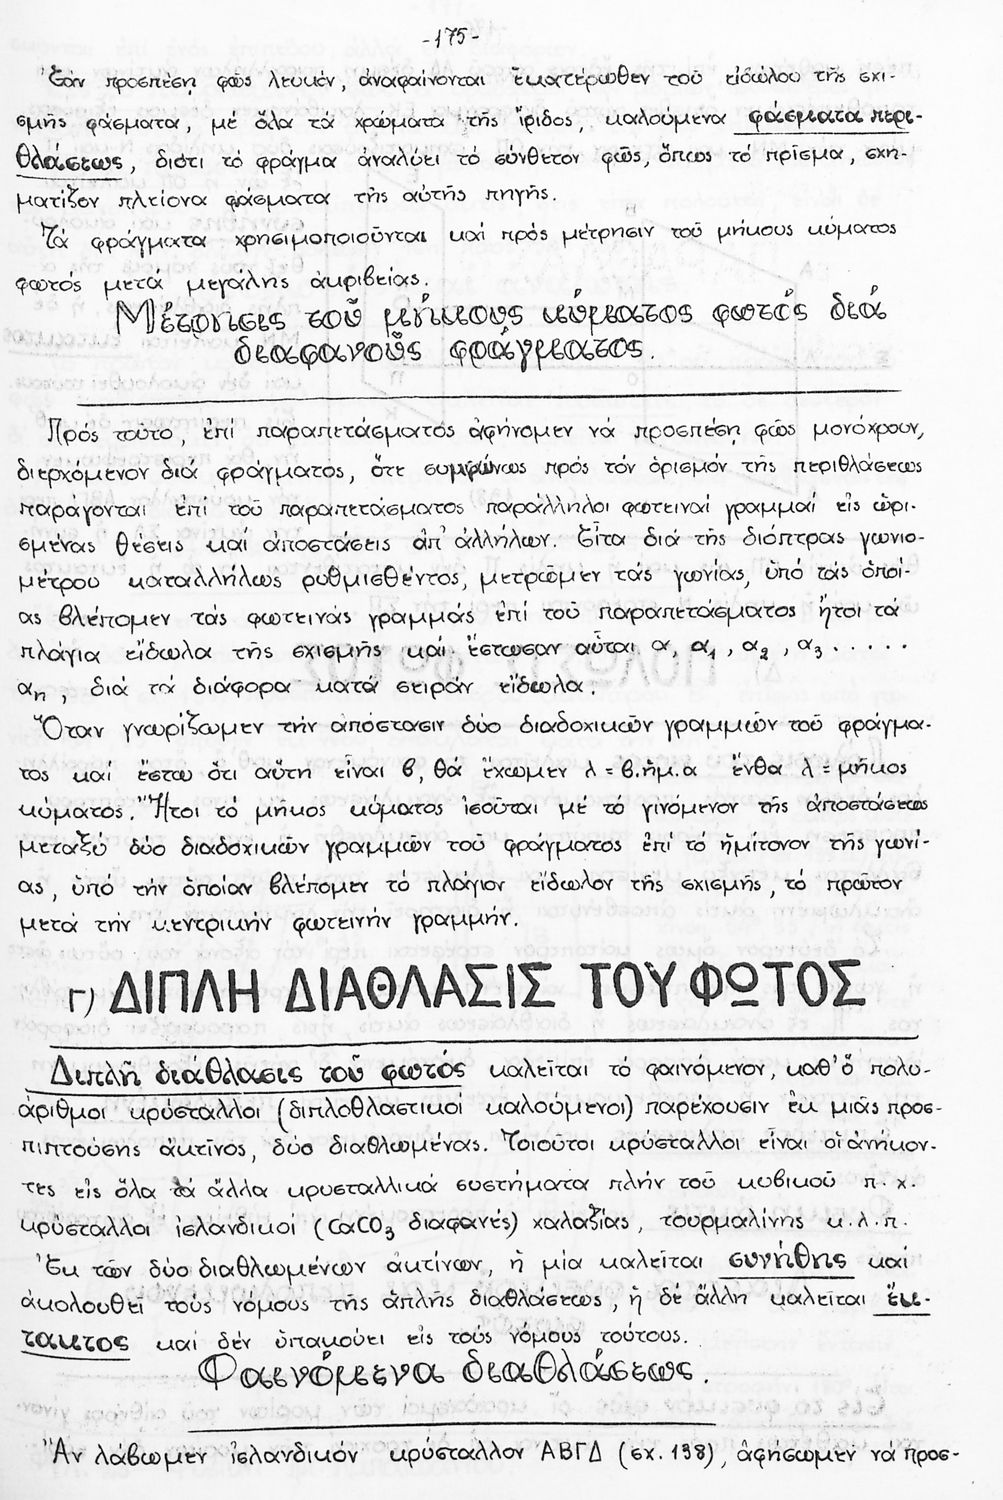 -175-
Ἐάν προσπέσῃ φῶς λευκόν, ἀναφαίνονται ἑκατέρωθεν τοῦ εἰδώλου τῆς σχι-
σμῆς φάσματα, μέ ὅλα τά χρώματα τῆς ἴριδος, καλούμενα φάσματα περι-
θλάσεως, διότι τό φράγμα ἀναλύει τό σύνθετον φῶς, ὅπως τό πρῖσμα, σχη-
ματίζον πλείονα φάσματα τῆς αὐτῆς πηγῆς.
Τά φράγματα χρησιμοποιοῦνται καί πρός μέτρησιν τοῦ μήκους κύματος
φωτός μετά μεγάλης ἀκριβείας.
Μέτρησις τοῦ μήκους κύματος φωτός διά
διαφανοῦς φράγματος.
Πρός τοῦτο, ἐπί παραπετάσματος ἀφήνομεν νά προσπέσῃ φῶς μονόχρουν,
διερχόμενον διά φράγματος, ὅτε συμφώνως πρός τόν ὁρισμόν τῆς περιθλάσεως
παράγονται ἐπί τοῦ παραπετάσματος παράλληλοι φωτειναί γραμμαί εἰς ὡρι-
σμένας θέσεις καί ἀποστάσεις ἀπ' ἀλλήλων. Εἶτα διά τῆς διόπτρας γωνιο-
μέτρου καταλλήλως ρυθμισθέντος, μετρῶμεν τάς γωνίας, ὑπό τάς ὁποί-
ας βλέπομεν τάς φωτεινάς γραμμάς ἐπί τοῦ παραπετάσματος ἤτοι τά
πλάγια εἴδωλα τῆς σχισμῆς καί ἔστωσαν αὗται α, α₁, α₂, α₃.....
αη, διά τά διάφορα κατά σειράν εἴδωλα.
Ὅταν γνωρίζωμεν τήν ἀπόστασιν δύο διαδοχικῶν γραμμῶν τοῦ φράγμα-
τος καί ἔστω ὅτι αὕτη εἶναι β, θά ἔχωμεν λ = β.ἡμ.α ἔνθα λ = μῆκος
κύματος. Ἤτοι τό μῆκος κύματος ἰσοῦται μέ τό γινόμενον τῆς ἀποστάσεως
μεταξύ δύο διαδοχικῶν γραμμῶν τοῦ φράγματος ἐπί τό ἡμίτονον τῆς γωνί-
ας, ὑπό τήν ὁποίαν βλέπομεν τό πλάγιον εἴδωλον τῆς σχισμῆς, τό πρῶτον
μετά τήν κεντρικήν φωτεινήν γραμμήν.
Γ) ΔΙΠΛΗ ΔΙΑΘΛΑΣΙΣ ΤΟΥ ΦΩΤΟΣ
Διπλῆ διάθλασις τοῦ φωτός καλεῖται τό φαινόμενον, καθ' ὅ πολυ-
άριθμοι κρύσταλλοι (διπλοθλαστικοί καλούμενοι) παρέχουσιν ἐκ μιᾶς προσ-
πιπτούσης ἀκτῖνος, δύο διαθλωμένας. Τοιοῦτοι κρύσταλλοι εἶναι οἱ ἀνήκον-
τες εἰς ὅλα τά ἄλλα κρυσταλλικά συστήματα πλήν τοῦ κυβικοῦ π.χ.
κρύσταλλοι ἰσλανδικοί (CaCO₃ διαφανές) χαλαζίας, τουρμαλίνης κ.λ.π.
Ἐκ τῶν δύο διαθλωμένων ἀκτίνων, ἡ μία καλεῖται συνήθης καί
ἀκολουθεῖ τούς νόμους τῆς ἁπλῆς διαθλάσεως, ἡ δέ ἄλλη καλεῖται ἔκ-
τακτος καί δέν ὑπακούει εἰς τούς νόμους τούτους.
Φαινόμενα διαθλάσεως.
Ἄν λάβωμεν ἰσλανδικόν κρύσταλλον ΑΒΓΔ (σχ. 198), ἀφήσωμεν νά προσ-